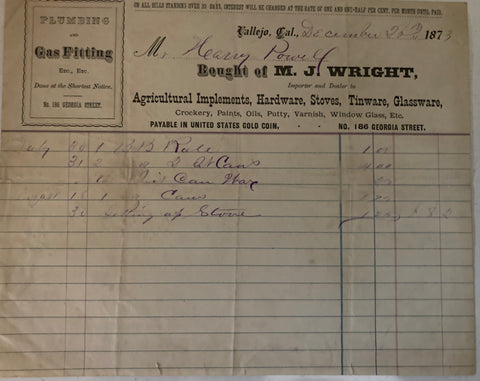 ON ALL BILLS STANDING OVER 30 DAYS, INTEREST WILL BE CHARGED AT THE RATE OF ONE AND ONE-HALF PER CENT. PER MONTH UNTIL PAID.
PLUMBING
AND
Gas Fitting
Etc., Etc.
Done at the Shortest Notice.
No. 186 GEORGIA STREET.
Vallejo, Cal., December 1873
Mr. Harry Powell
Bought of M. J. WRIGHT,
Importer and Dealer to
Agricultural Implements, Hardware, Stoves, Tinware, Glassware,
Crockery, Paints, Oils, Putty, Varnish, Window Glass, Etc.
PAYABLE IN UNITED STATES GOLD COIN. NO. 186 GEORGIA STREET.
July 30 1
31 2 Cans 4.00
Can Wax
August 18 1 Cans
30 Setting up Stove